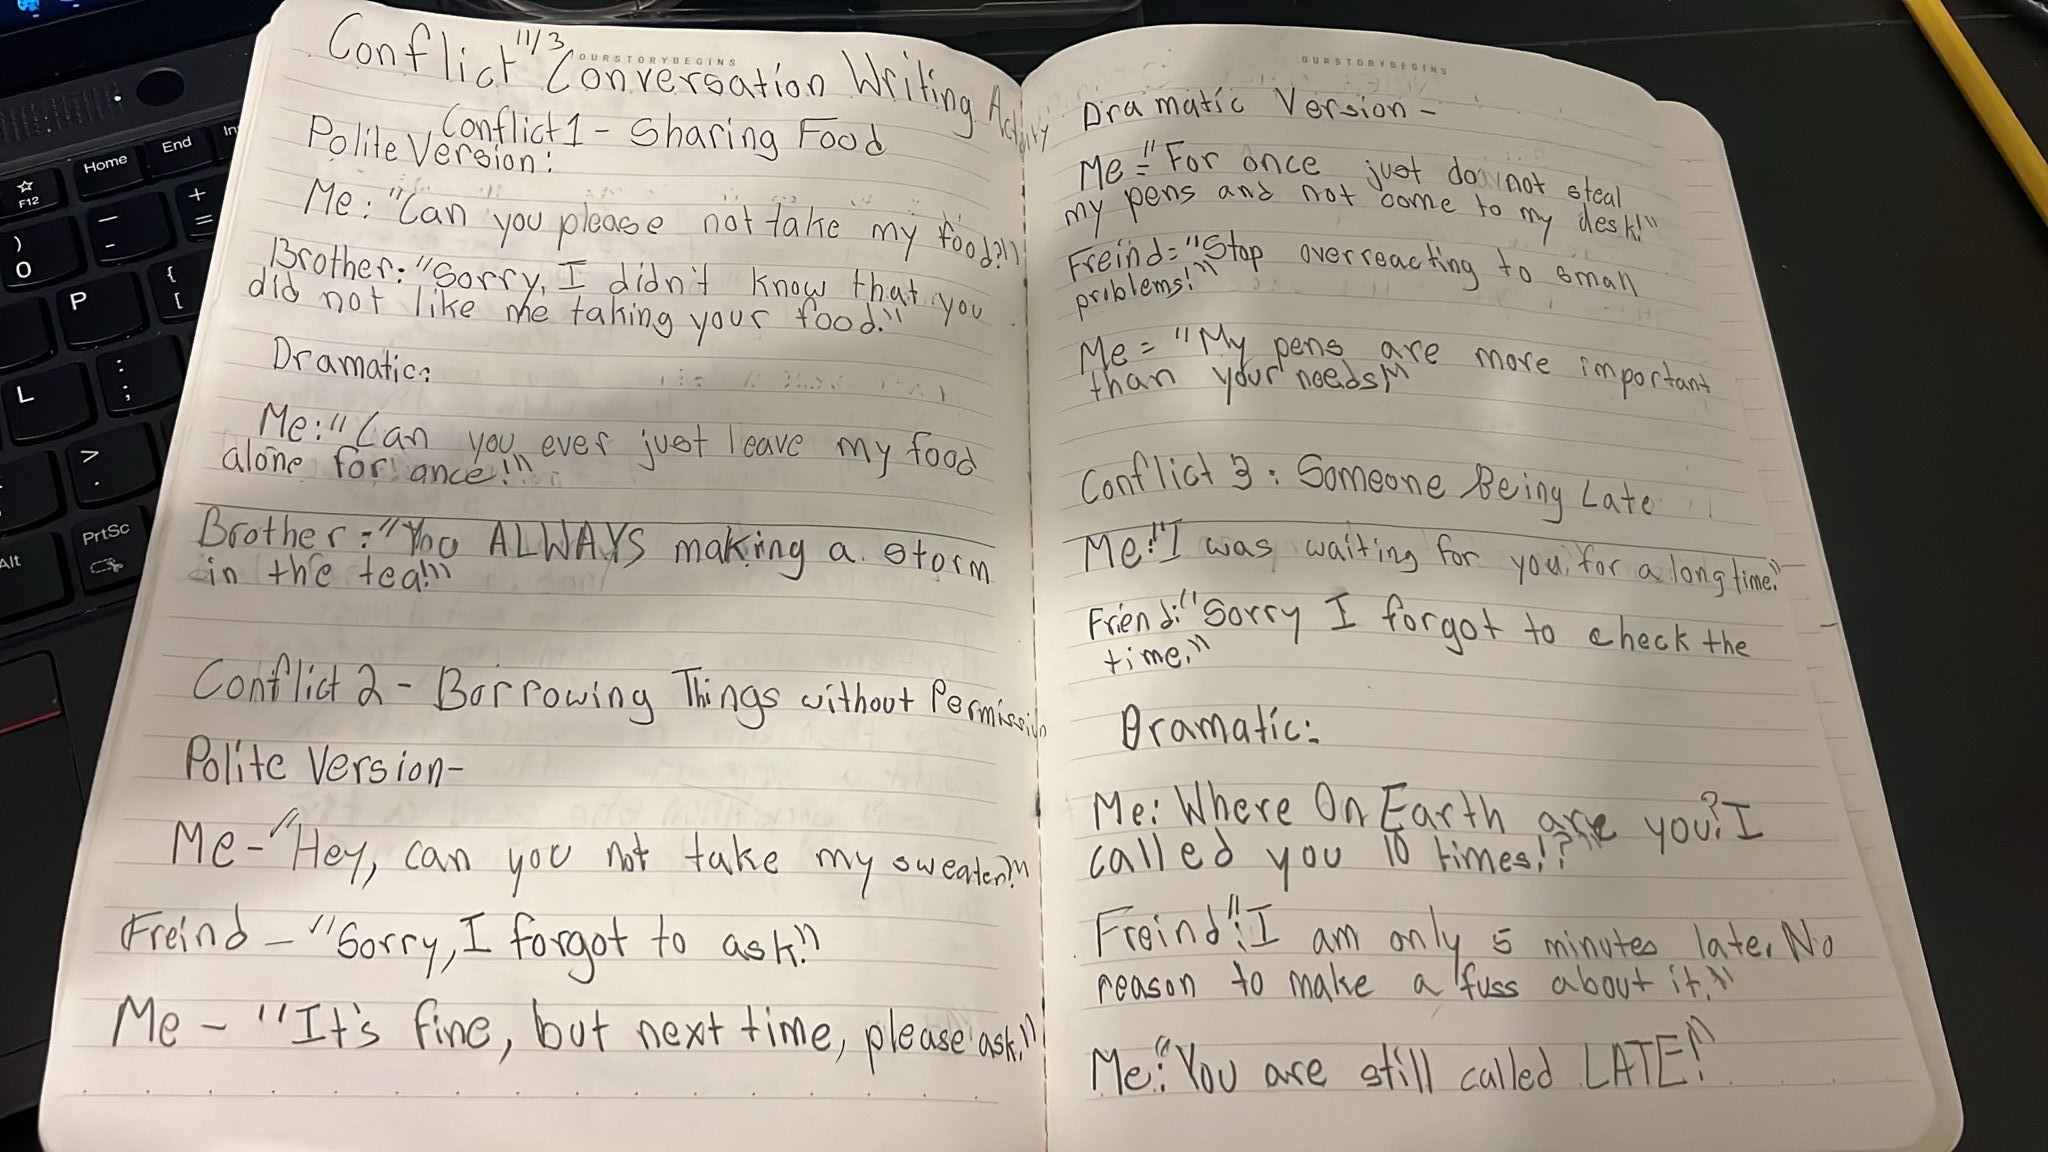 11/3
OURSTORYBEGINS
Conflict Conversation Writing Activity
Conflict 1 - Sharing Food
Polite Version:
Me: "Can you please not take my food?"
Brother: "Sorry, I didn't know that you
did not like me taking your food."
Dramatic:
Me: "Can you ever just leave my food
alone for once!"
Brother: "You ALWAYS making a storm
in the tea!"
Conflict 2 - Borrowing Things without Permission
Polite Version-
Me- "Hey, can you not take my sweater?"
Freind - "Sorry, I forgot to ask."
Me - "It's fine, but next time, please ask."
OURSTORYBEGINS
Dramatic Version -
Me = "For once just do not steal
my pens and not come to my desk!"
Freind = "Stop overreacting to small
problems!"
Me = "My pens are more important
than your needs!"
Conflict 3: Someone Being Late
Me: "I was waiting for you for a long time."
Friend: "Sorry I forgot to check the
time."
Dramatic:
Me: Where On Earth are you? I
called you 10 times!?"
Freind: "I am only 5 minutes late. No
reason to make a fuss about it."
Me: "You are still called LATE!"
Home
End
In
F12
)
0
P
{
[
+
=
-
L
:
;
>
.
PrtSc
Alt